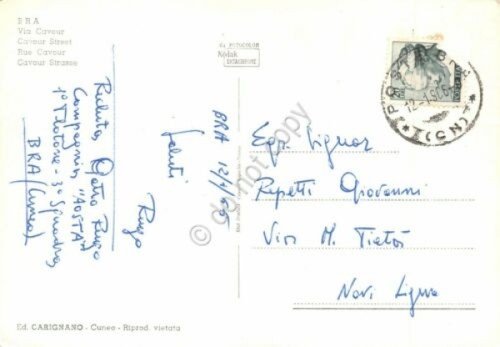 BRA
Via Cavour
Cavour Street
Rue Cavour
Cavour Strasse
Ed. FOTOCOLOR
Kodak
EKTACHROME
BRA 12/1/65
Saluti
Ringo
Compagnia "AOSTA"
1° Plotone - 3ª Squadra
BRA (Cuneo)
Egr. Signor
Repetti Giovanni
Via M.
Novi Ligure
Ed. CARIGNANO - Cuneo - Riprod. vietata
POSTE BRA
(CN)
delcampe